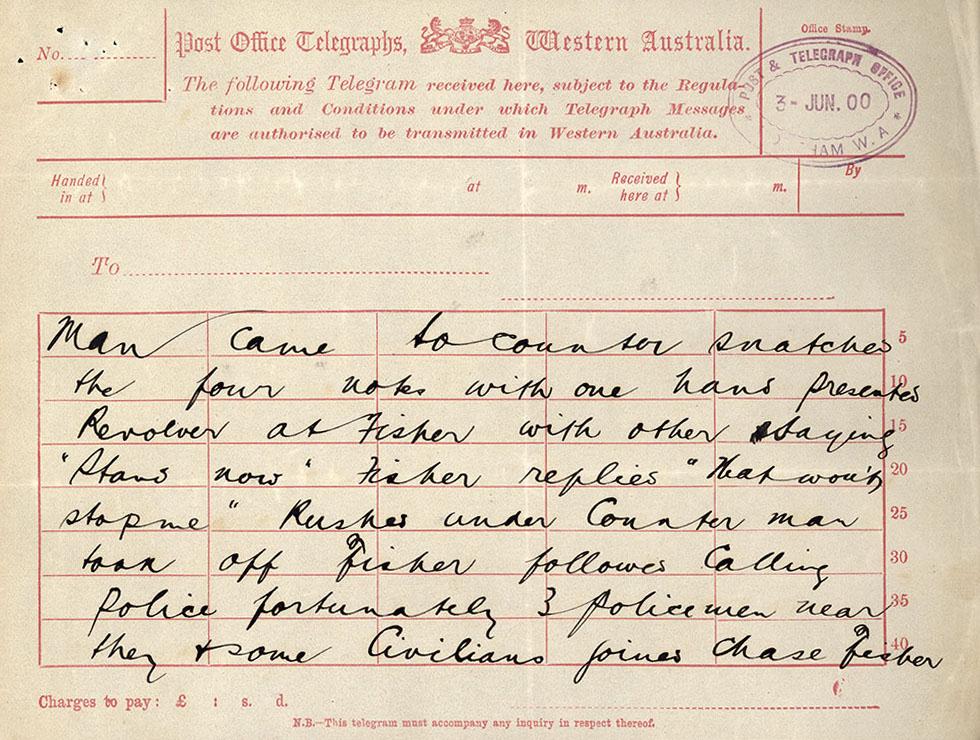 No.
Post Office Telegraphs, Western Australia.
Office Stamp.
The following Telegram received here, subject to the Regula-
tions and Conditions under which Telegraph Messages
are authorised to be transmitted in Western Australia.
POST & TELEGRAPH OFFICE
3 - JUN. 00
HAM W. A
Handed in at } at m. Received here at } m. By
To
Man came to counter snatched 5
the four notes with one hand presented 10
Revolver at Fisher with other saying 15
"Stand now" Fisher replied "that won't 20
stop me" Rushed under Counter man 25
took off Fisher followed Calling 30
police fortunately 3 policemen near 35
they & some Civilians joined chase Fisher 40
Charges to pay: £ : s. d.
N.B.—This telegram must accompany any inquiry in respect thereof.